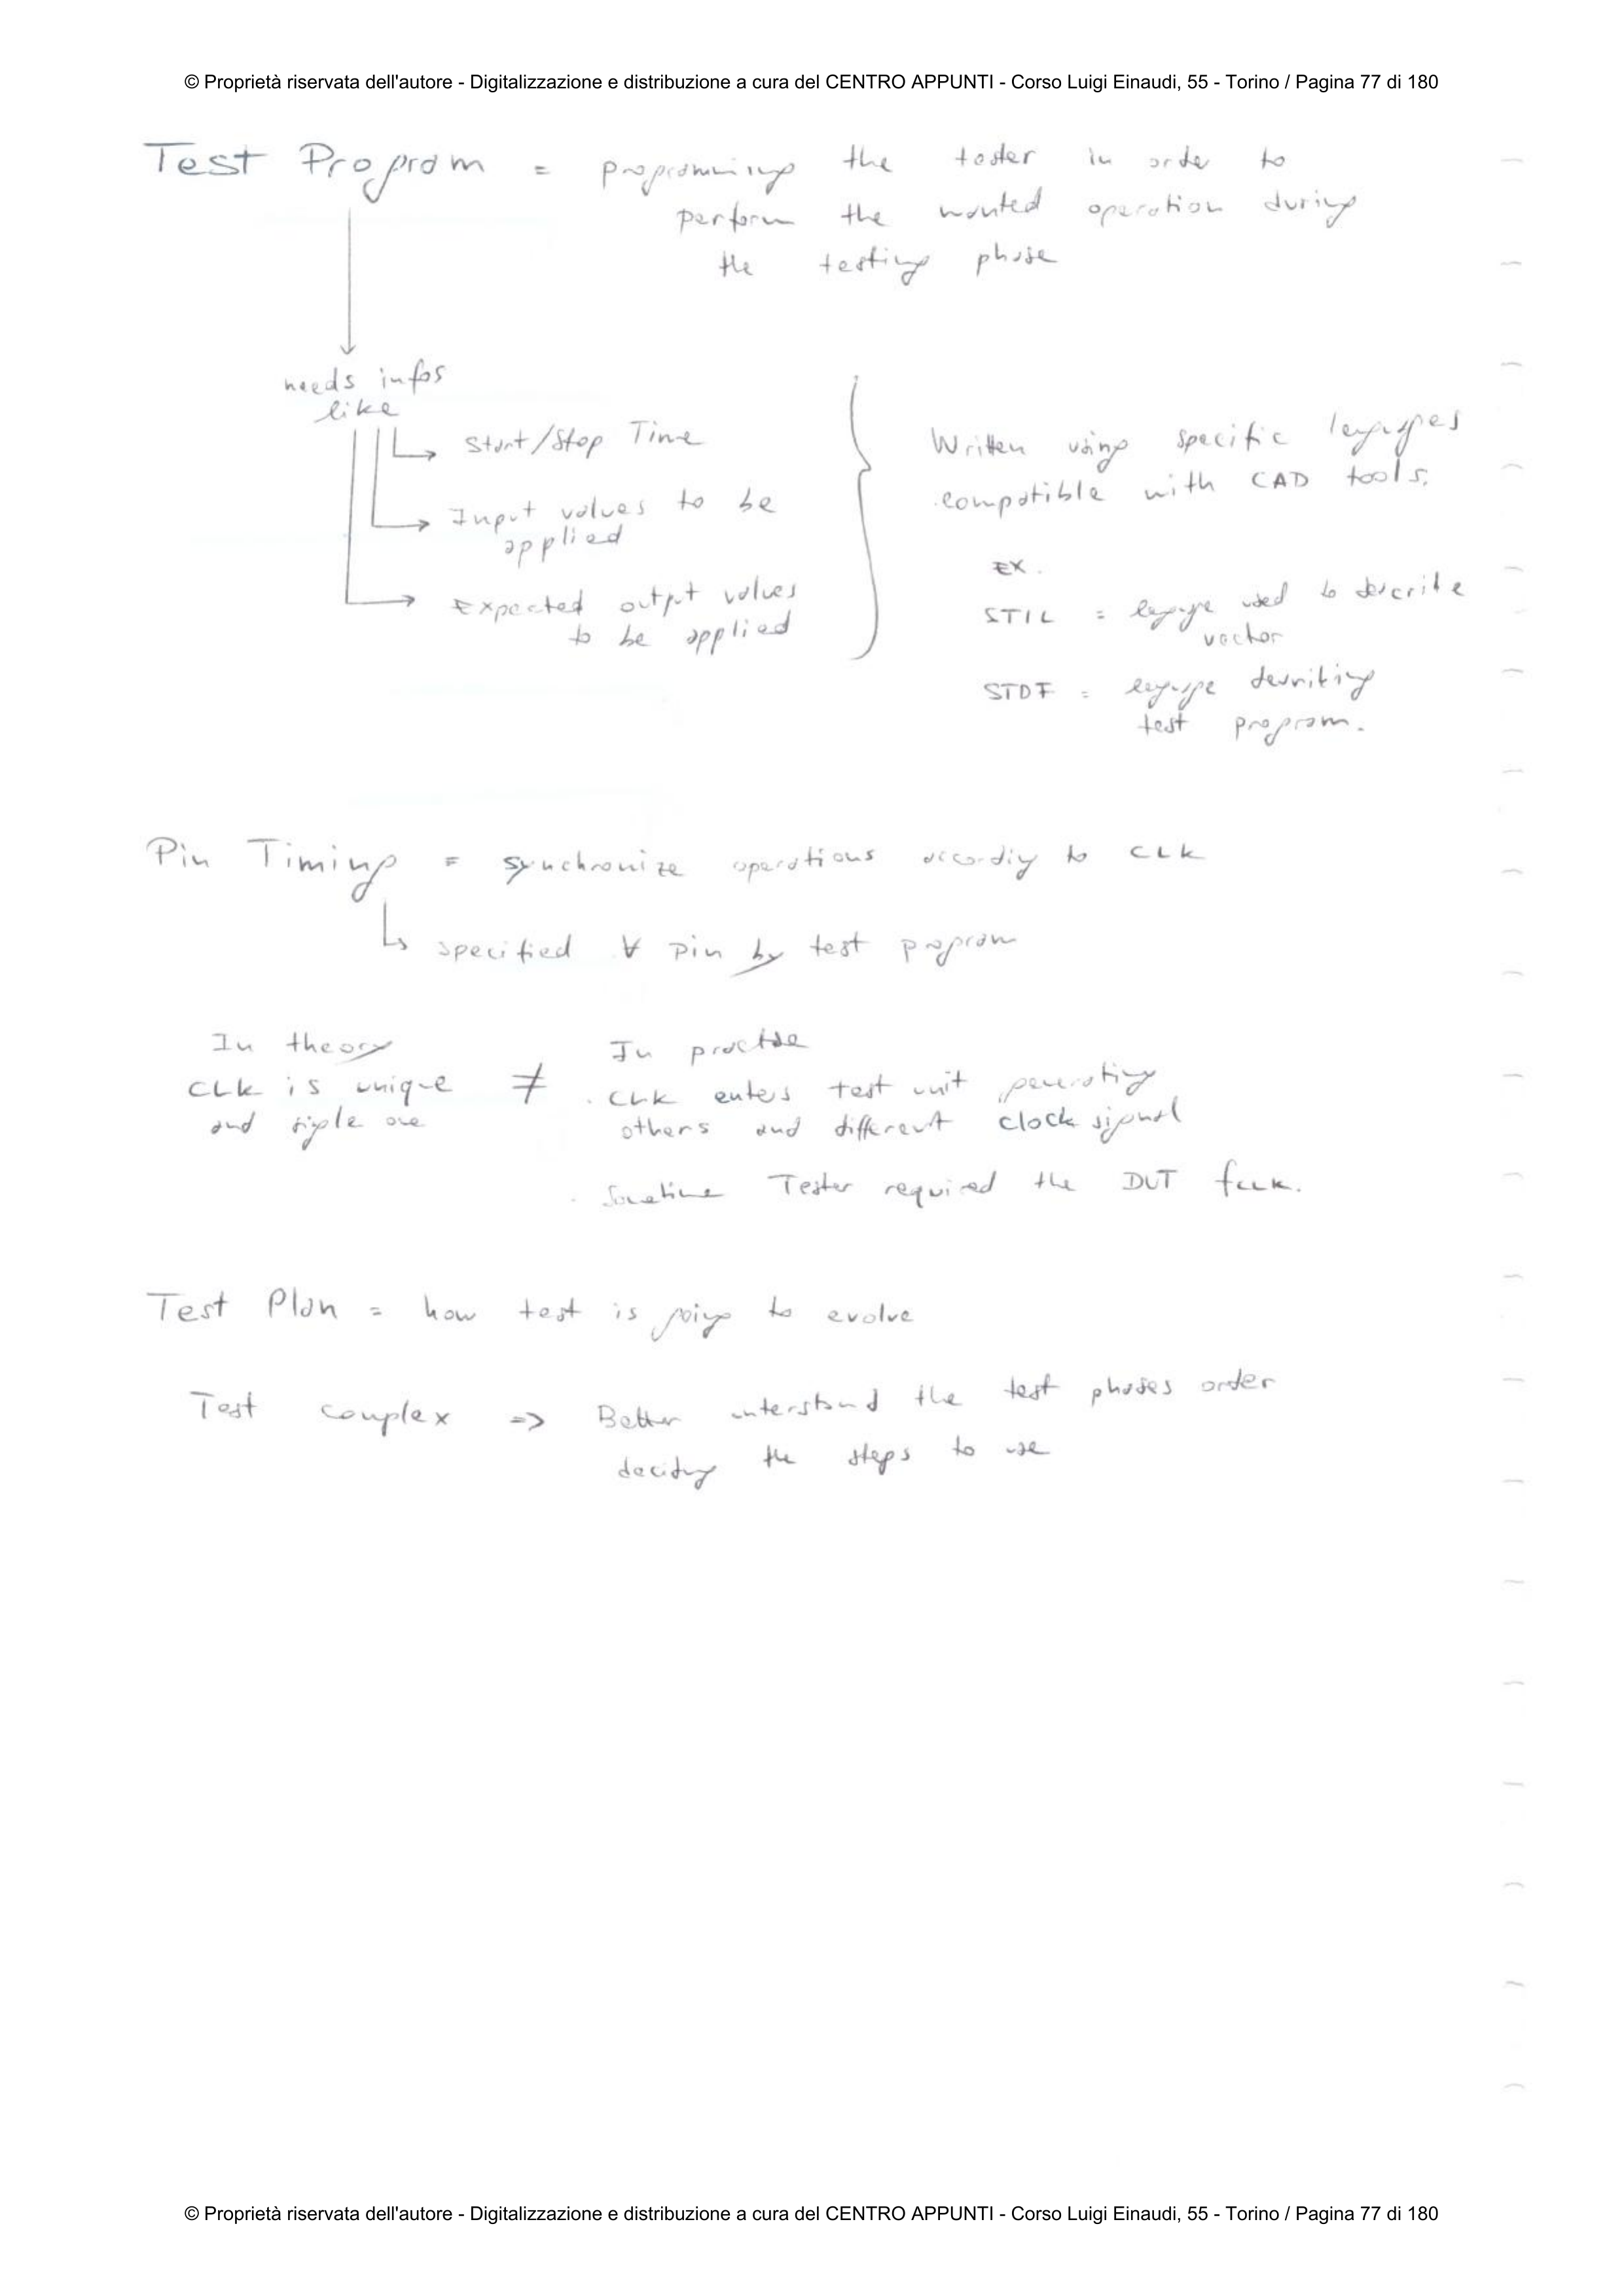 © Proprietà riservata dell'autore - Digitalizzazione e distribuzione a cura del CENTRO APPUNTI - Corso Luigi Einaudi, 55 - Torino / Pagina 77 di 180
Test Program = programming the tester in order to
perform the wanted operation during
the testing phase
needs infos
like
Start/Stop Time
Input values to be
applied
Expected output values
to be applied
Written using specific languages
compatible with CAD tools.
EX.
STIL = language used to describe
vector
STDF = language describing
test program.
Pin Timing = synchronize operations according to CLK
specified ∀ pin by test program
In theory
CLK is unique
and single one
≠
In practise
. CLK enters test unit generating
others and different clock signal
. Sometime Tester required the DUT fCLK.
Test Plan = how test is going to evolve
Test complex => Better understand the test phases order
deciding the steps to use
© Proprietà riservata dell'autore - Digitalizzazione e distribuzione a cura del CENTRO APPUNTI - Corso Luigi Einaudi, 55 - Torino / Pagina 77 di 180